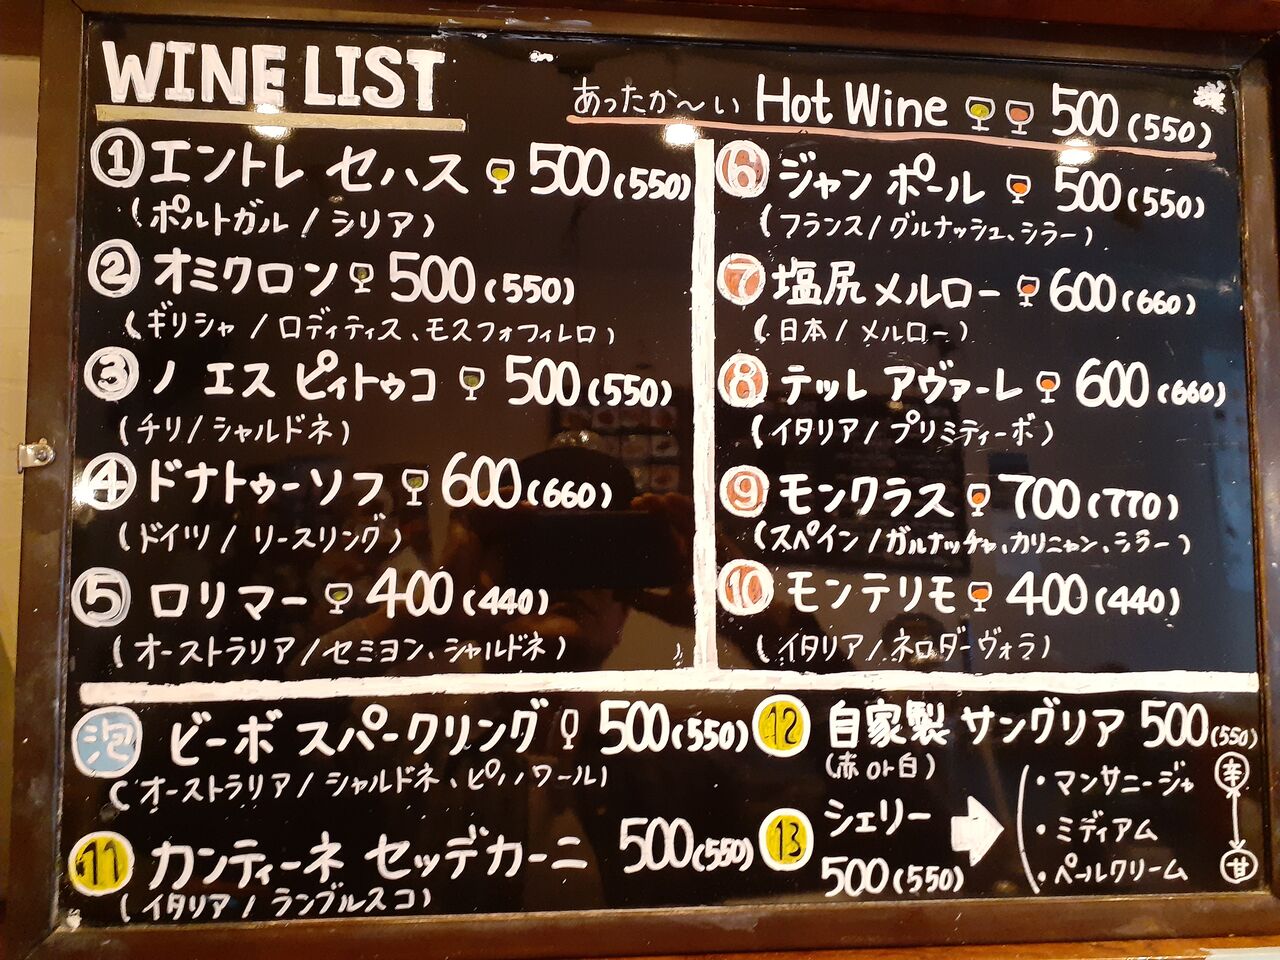 WINE LIST
あったか〜い Hot Wine 500 (550)
① エントレ セハス 500 (550)
(ポルトガル / シリア)
② オミクロン 500 (550)
(ギリシャ / ロディティス、モスフォフィレロ)
③ ノ エス ピィトゥコ 500 (550)
(チリ / シャルドネ)
④ ドナトゥーソフ 600 (660)
(ドイツ / リースリング)
⑤ ロリマー 400 (440)
(オーストラリア / セミヨン、シャルドネ)
⑥ ジャン ポール 500 (550)
(フランス / グルナッシュ、シラー)
⑦ 塩尻メルロー 600 (660)
(日本 / メルロー)
⑧ テッレ アヴァーレ 600 (660)
(イタリア / プリミティーボ)
⑨ モンクラス 700 (770)
(スペイン / ガルナッチャ、カリニャン、シラー)
⑩ モンテリモ 400 (440)
(イタリア / ネロダーヴォラ)
泡 ビーボ スパークリング 500 (550)
(オーストラリア / シャルドネ、ピノノワール)
11 カンティーネ セッデカーニ 500 (550)
(イタリア / ランブルスコ)
12 自家製 サングリア 500 (550)
(赤 or 白)
13 シェリー
500 (550)
・マンサニージャ 辛
・ミディアム
・ペールクリーム 甘